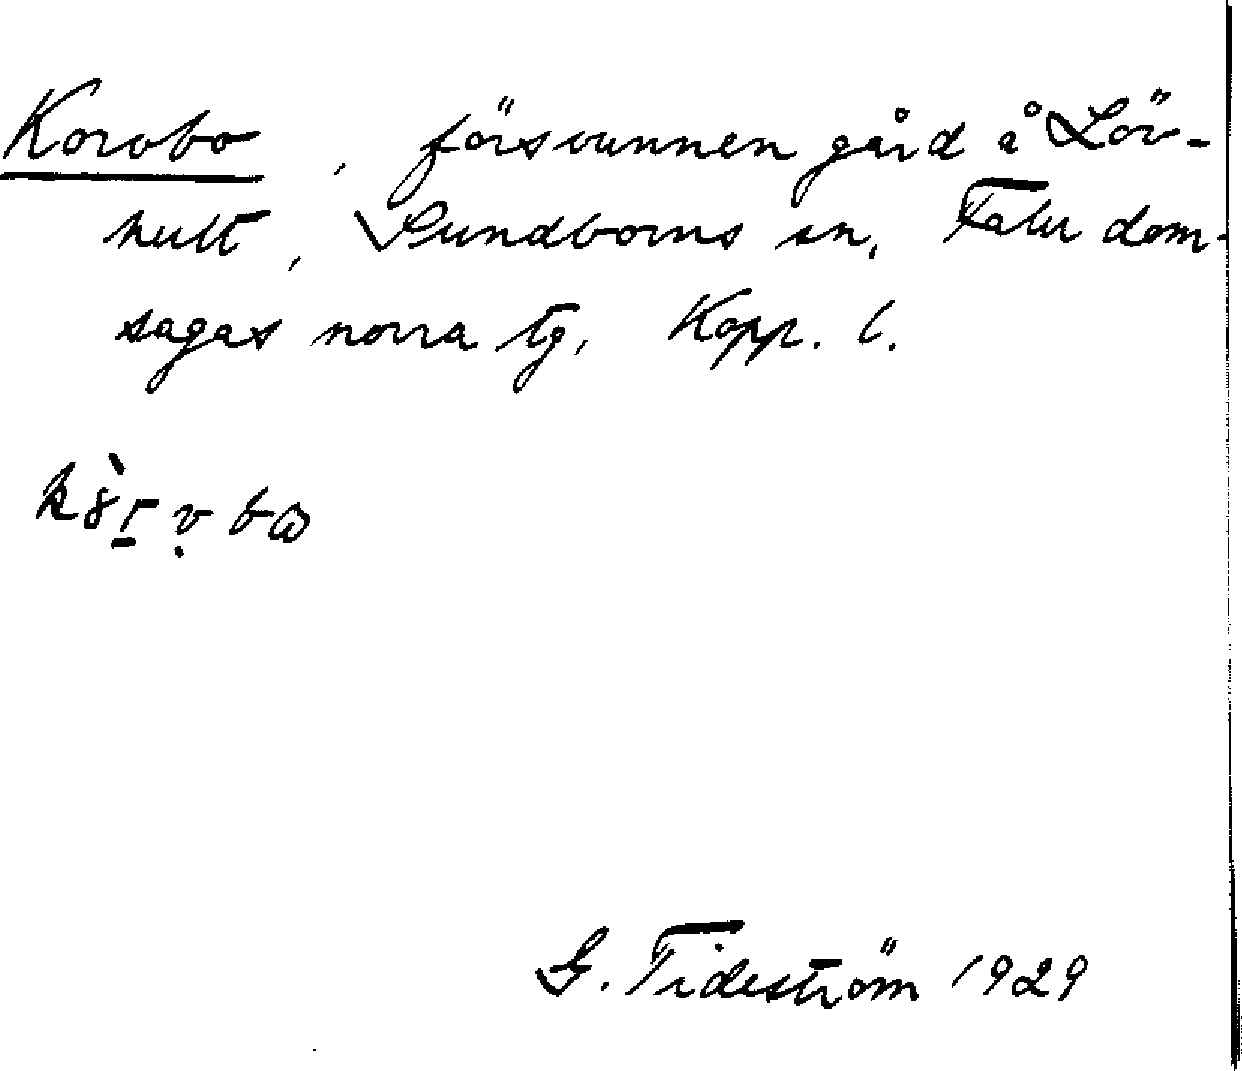 Korvbo, försvunnen gård å Löv-
hult, Sundborns sn, Falu dom-
sagas norra tg, Kopp. l.
G. Tideström 1929